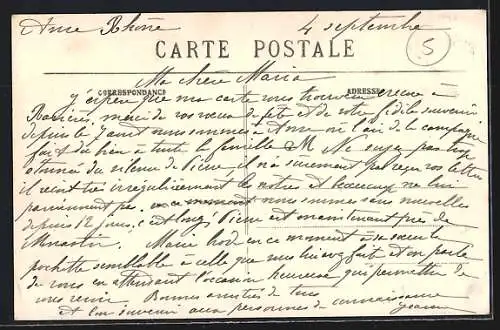 Anse Rhône 4 septembre
5
CARTE POSTALE
CORRESPONDANCE ADRESSE
Ma chère Maria
j'espère que ma carte vous trouvera encore à
merci de vos vœux de fête et de votre fidèle souvenir
depuis le nous sommes à Anse où l'air de la campagne
fait du bien à toute la famille M Ne soyez pas trop
étonnée du silence de Pierre il n'a sûrement pas reçu vos lettres
il reçoit très irrégulièrement les nôtres et beaucoup ne lui
parviennent pas. en ce moment nous sommes sans nouvelles
depuis 12 jours, c'est long, Pierre est maintenant près de
Marie brode en ce moment à sa
pochette semblable à celle que vous lui avez fait et on parle
de vous en attendant l'occasion heureuse qui permettra de
vous revoir. Bonnes amitiés de tous
et bon souvenir aux personnes de connaissance
Jeanne